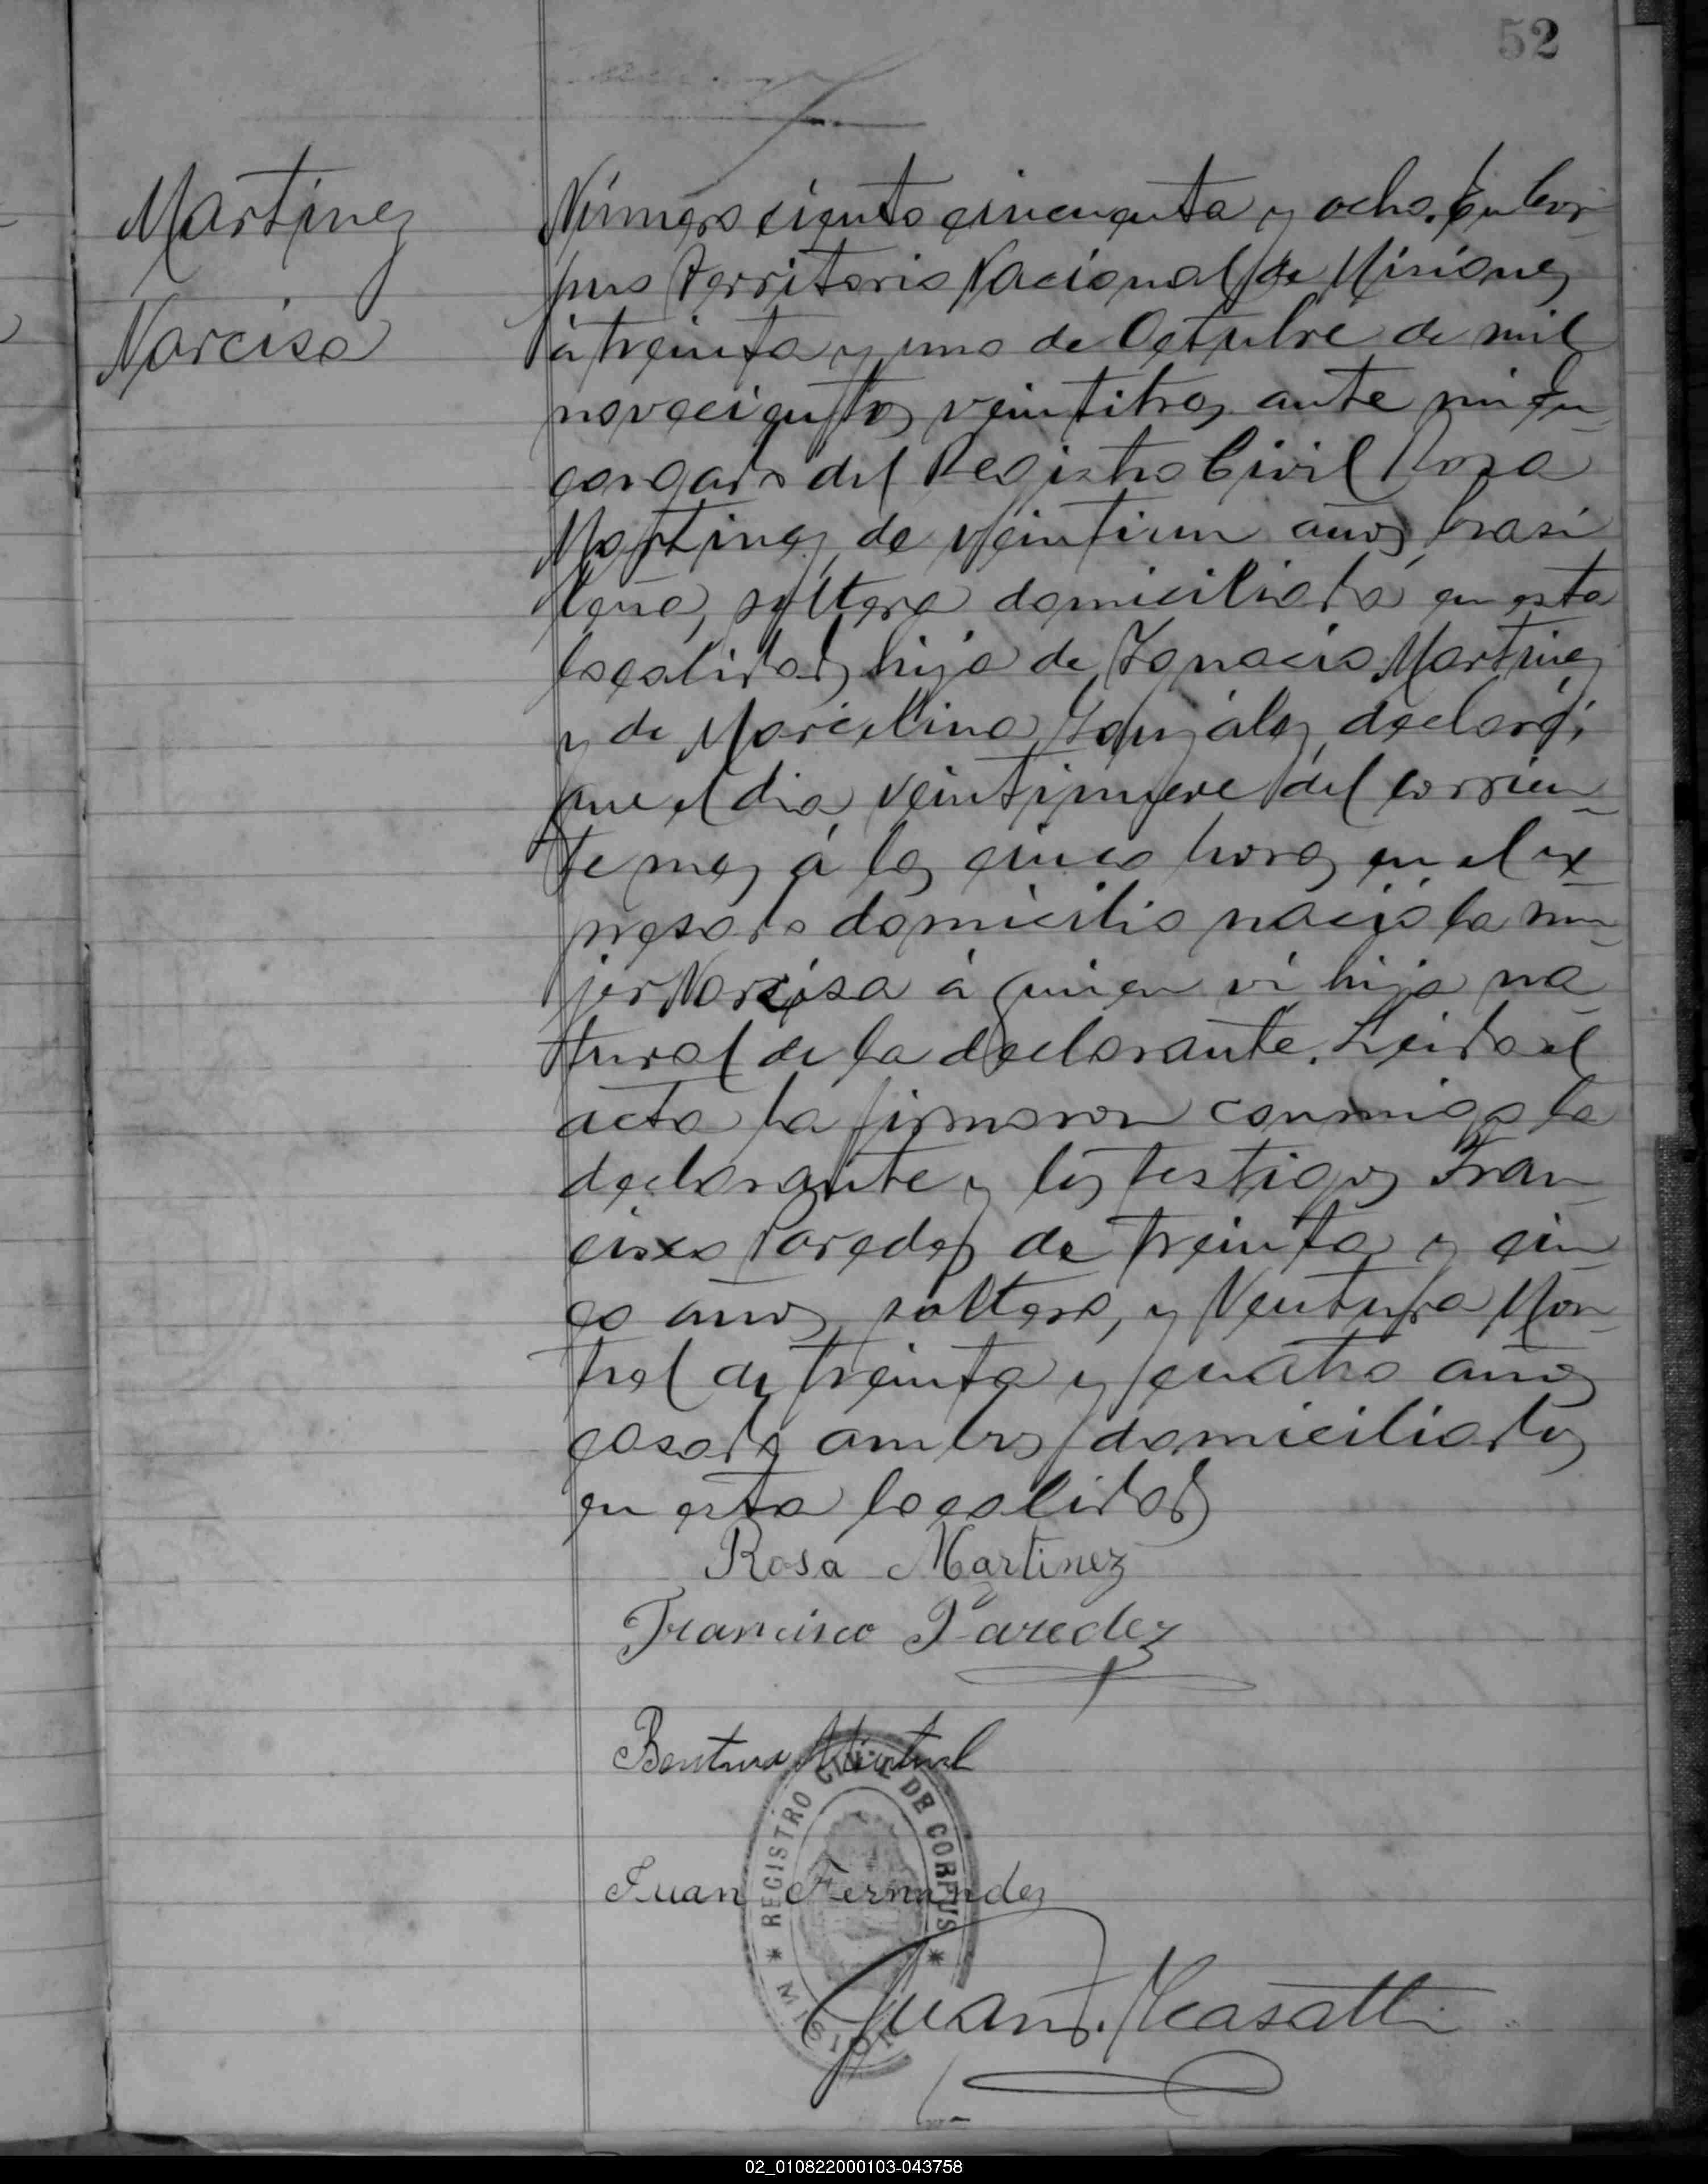 52
Martinez
Narcisa
Número ciento cincuenta y ocho. En Cor-
pus Territorio Nacional de Misiones
á treinta y uno de Octubre de mil
novecientos veintitres ante mi En-
cargado del Registro Civil Rosa
Martinez de veintiun años, brasi
leña, soltera domiciliada en esta
localidad, hija de Ignacio Martinez
y de Marcelina Gonzáles, declaró;
que el dia veintinueve del corrien-
te mes á las cinco horas en el ex-
presado domicilio nació la mu-
jer Narcisa á quien vi hija na
tural de la declarante. Leida el
acta la firmaron conmigo la
declarante y los testigos Fran-
cisco Paredes de treinta y cin-
co años, soltero, y Ventura Mon-
tiel de treinta y cuatro años
casado ambos domiciliados
en esta localidad
Rosa Martinez
Francisco Paredez
Bentura
Juan Fernandez
REGISTRO CIVIL DE CORPUS
MISIONES
Juan
02_010822000103-043758